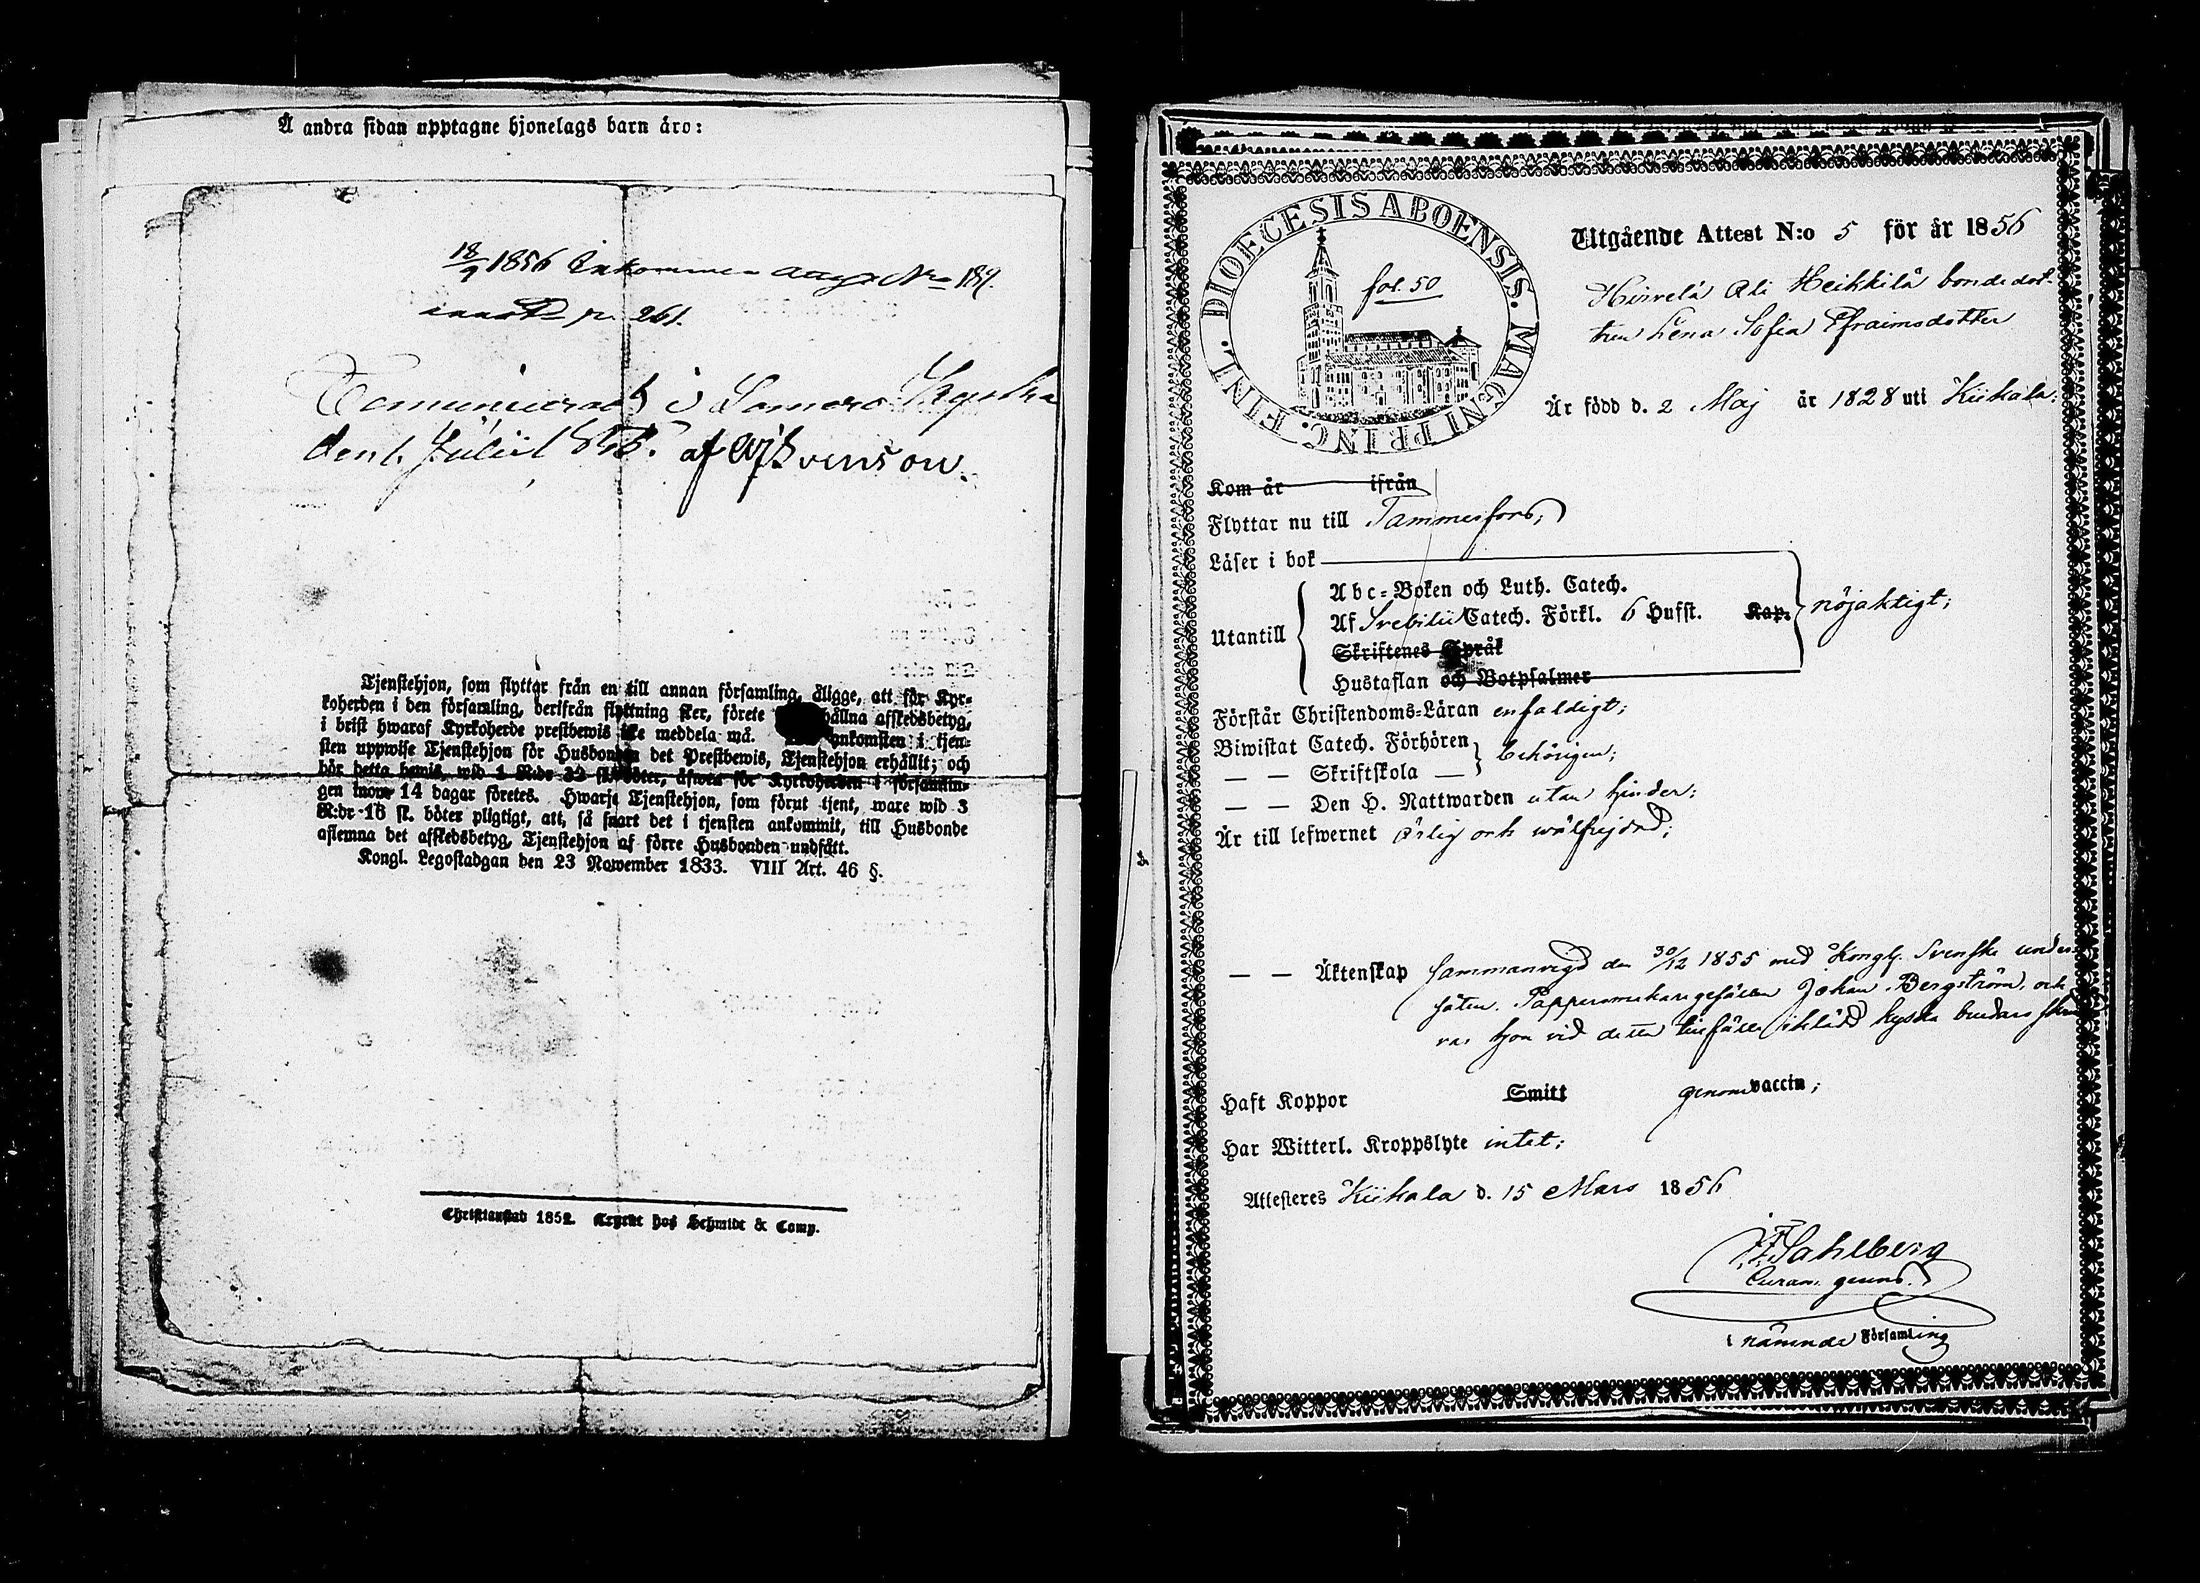 Å andra sidan upptagne hjonelags barn äro:
18/9 1856 Inkommen N:o 189.
p. 261.
Comunicerad i Somero Kyrka
den 1. Julii af
Tjenstehjon, som flyttar från en till annan församling, åligge, att för Kyr-
koherden i den församling, derifrån flyttning sker, förete hållna afskedsbetyg,
i brist hwaraf Kyrkoherde prestbewis icke meddela må. ankomsten i tjen-
sten uppwise Tjenstehjon för Husbonden det Prestbewis, Tjenstehjon erhållit; och
bör detta bewis, wid 1 R:dr 32 sk. böter, äfwen för Kyrkoherden i församlin-
gen inom 14 dagar företes. Hwarje Tjenstehjon, som förut tjent, ware wid 3
R:dr 16 sk. böter pligtigt, att, så snart det i tjensten ankommit, till Husbonde
aflemna det afskedsbetyg, Tjenstehjon af förre Husbonden undfått.
Kongl. Legostadgan den 23 Nowember 1833. VIII Art. 46 §.
Christianstad 1852. Tryckt hos Schmidt & Comp.
DIOECESIS ABOENSIS. MAGNI PRINC. FINL.
fol. 50
Utgående Attest N:o 5 för år 1856
Hirvelä Ali Heikkilä bondedot-
tren Lena Sofia Efraimsdotter
Är född d. 2 Maj år 1828 uti Kiikala;
Kom år ifrån
Flyttar nu till Tammerfors;
Läser i bok
Utantill
Abc-Boken och Luth. Catech.
Af Svebilii Catech. Förkl. 6 Hufst. Kap. nöjaktigt;
Skriftenes Språk
Hustaflan och Botpsalmer
Förstår Christendoms-Läran enfaldigt;
Biwistat Catech. Förhören behörigen;
— — Skriftskola —
— — Den H. Nattwarden utan hinder;
Är till lefwernet ärlig och wälfrejdad;
— — Äktenskap sammanvigd den 30/12 1855 med Kongl. Svenske under-
såten Pappersmakaregesällen Johan Bergström, och
var hon vid detta tillfälle iklädd kyska brudars skrud
Haft Koppor Smitt genom vaccin;
Har Witterl. Kroppslyte intet;
Attesteres Kiikala d. 15 Mars 1856
Sahlberg
Curam gerens.
i nämnde Församling